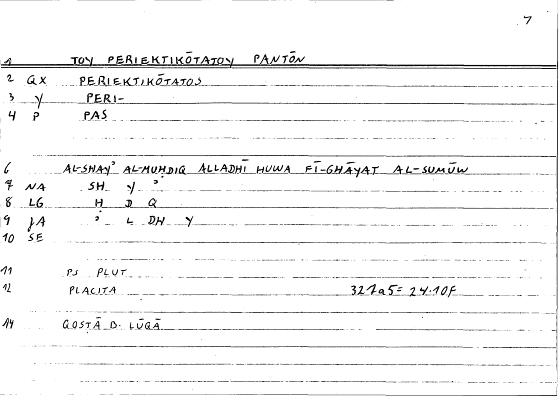 7
1 TOY PERIEKTIKŌTATOY PANTŌN
2 QX PERIEKTIKŌTATOS
3 Y PERI-
4 P PAS
6 AL-SHAYʾ AL-MUHDIQ ALLADHĪ HUWA FĪ-GHĀYAT AL-SUMŪW
7 NA SH Y ʾ
8 LG H D Q
9 JA ʾ L DH Y
10 SE
11 PS PLUT
12 PLACITA 327a5= 24.10f
14 QOSTĀ B. LŪQĀ